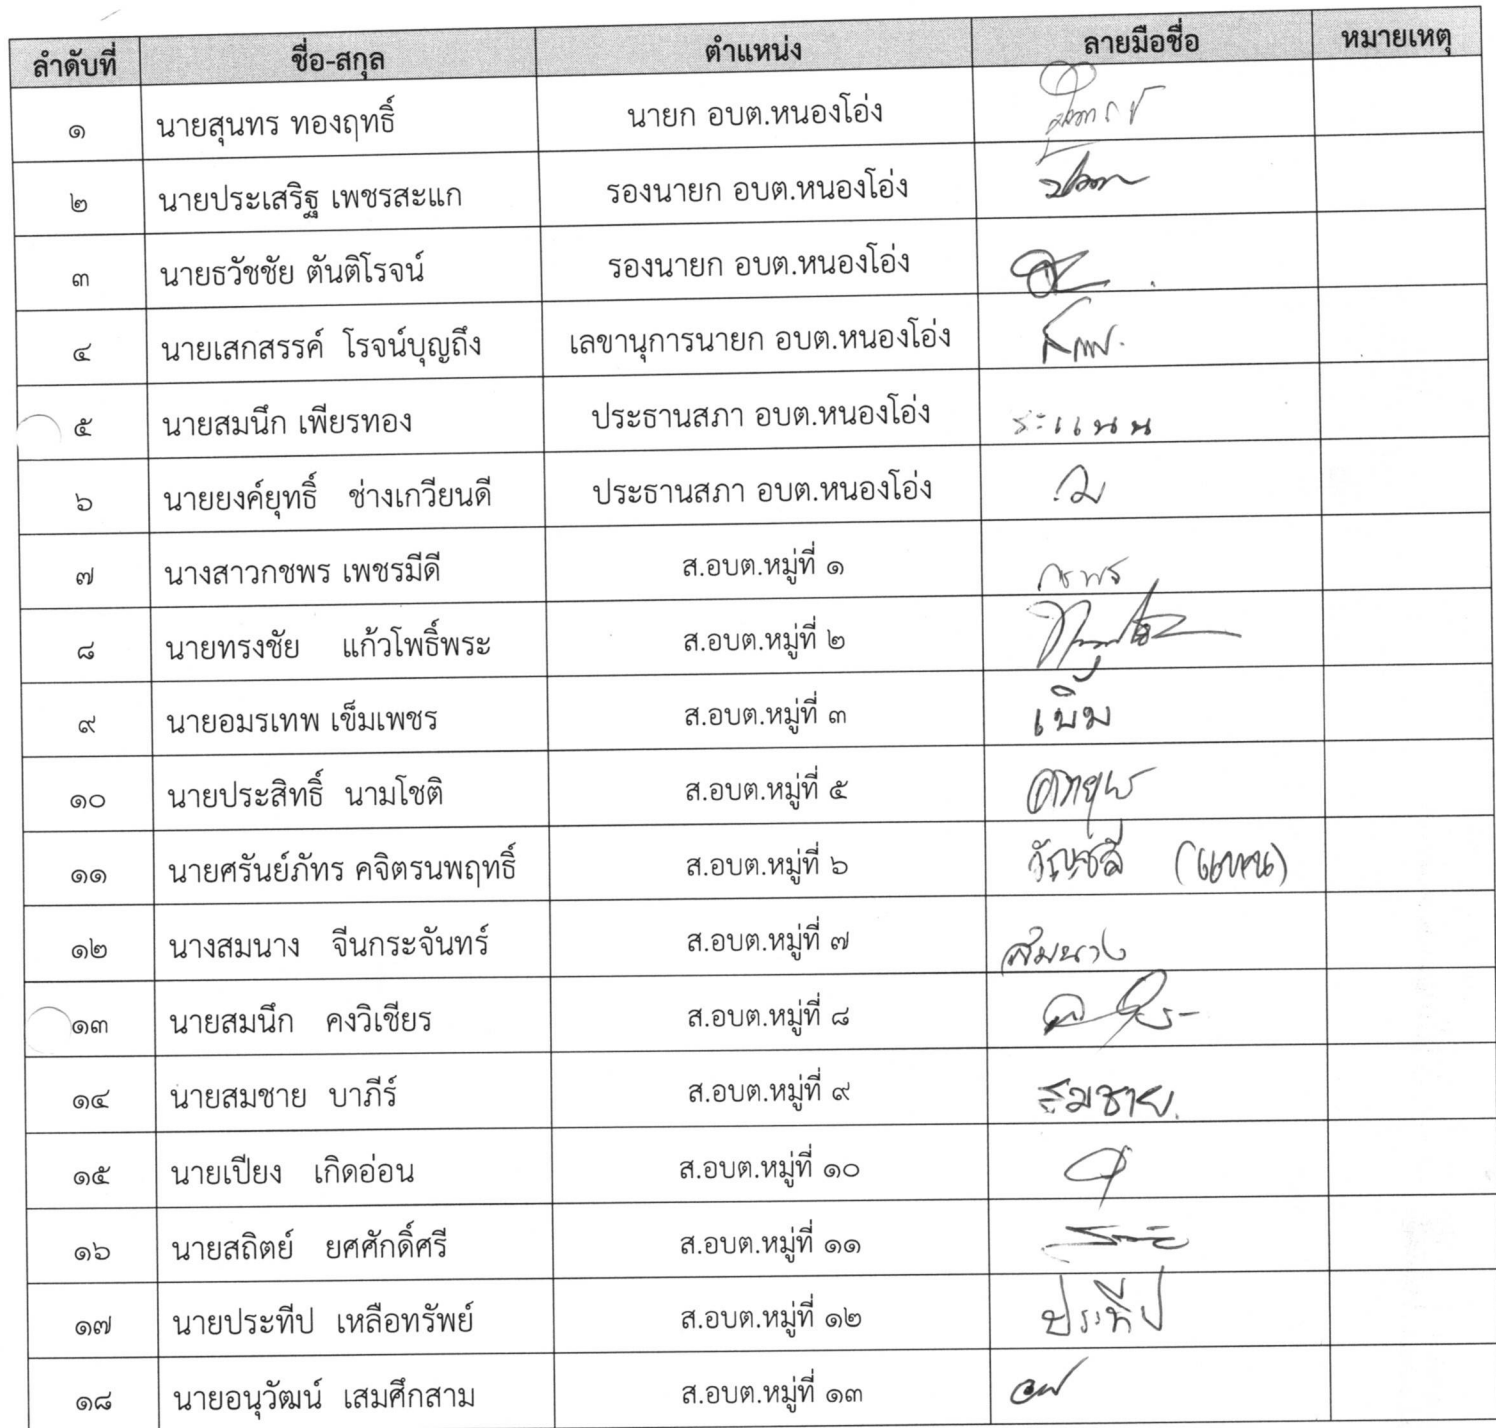 ลำดับที่ ชื่อ-สกุล ตำแหน่ง ลายมือชื่อ หมายเหตุ
๑ นายสุนทร ทองฤทธิ์ นายก อบต.หนองโอ่ง
๒ นายประเสริฐ เพชรสะแก รองนายก อบต.หนองโอ่ง
๓ นายธวัชชัย ตันติโรจน์ รองนายก อบต.หนองโอ่ง
๔ นายเสกสรรค์ โรจน์บุญถึง เลขานุการนายก อบต.หนองโอ่ง
๕ นายสมนึก เพียรทอง ประธานสภา อบต.หนองโอ่ง
๖ นายยงค์ยุทธิ์ ช่างเกวียนดี ประธานสภา อบต.หนองโอ่ง
๗ นางสาวกชพร เพชรมีดี ส.อบต.หมู่ที่ ๑ กชพร
๘ นายทรงชัย แก้วโพธิ์พระ ส.อบต.หมู่ที่ ๒
๙ นายอมรเทพ เข็มเพชร ส.อบต.หมู่ที่ ๓
๑๐ นายประสิทธิ์ นามโชติ ส.อบต.หมู่ที่ ๕
๑๑ นายศรันย์ภัทร คจิตรนพฤทธิ์ ส.อบต.หมู่ที่ ๖ (แทน)
๑๒ นางสมนาง จีนกระจันทร์ ส.อบต.หมู่ที่ ๗ สมนาง
๑๓ นายสมนึก คงวิเชียร ส.อบต.หมู่ที่ ๘
๑๔ นายสมชาย บาภีร์ ส.อบต.หมู่ที่ ๙ สมชาย
๑๕ นายเปียง เกิดอ่อน ส.อบต.หมู่ที่ ๑๐
๑๖ นายสถิตย์ ยศศักดิ์ศรี ส.อบต.หมู่ที่ ๑๑
๑๗ นายประทีป เหลือทรัพย์ ส.อบต.หมู่ที่ ๑๒ ประทีป
๑๘ นายอนุวัฒน์ เสมศึกสาม ส.อบต.หมู่ที่ ๑๓